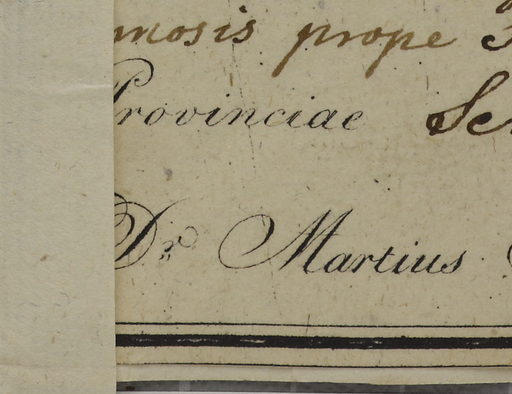 mosis prope
Provinciae
Dr. Martius